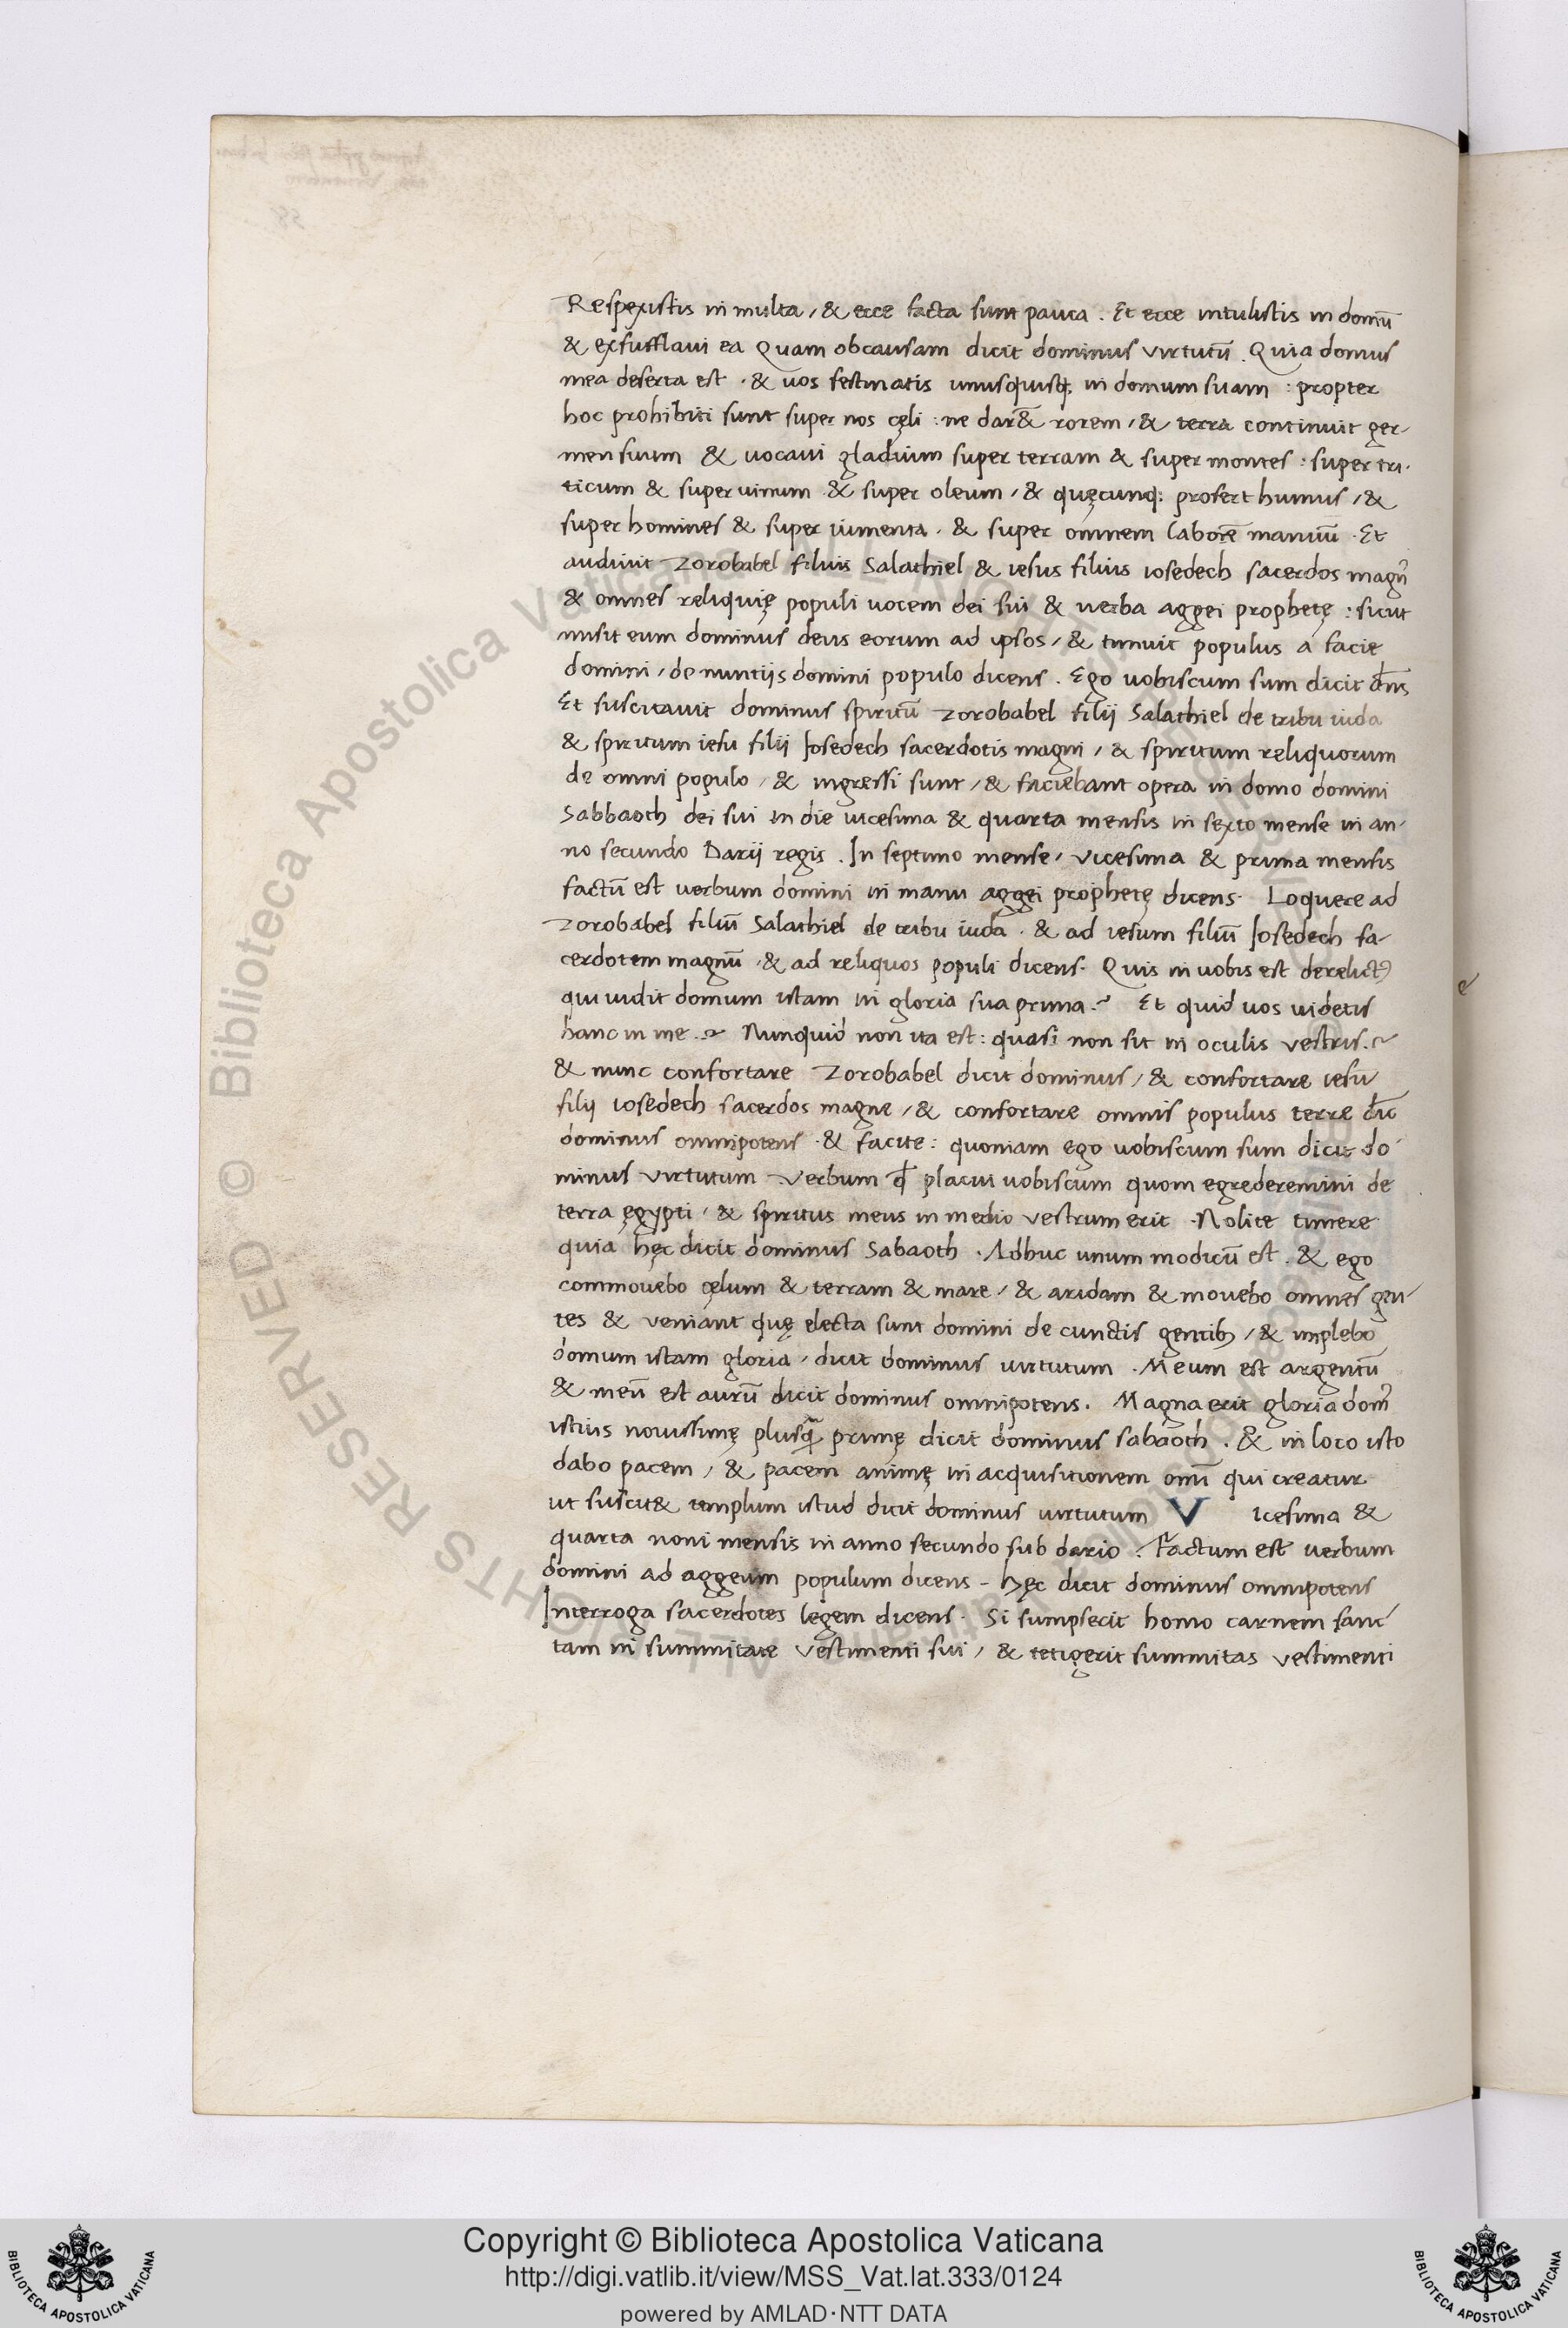 Respexistis in multa / & ecce facta sunt pauca . Et ecce intulistis in domū
& exsufflaui ea Quam obcausam dicit dominus virtutū . Quia domus
mea deserta est . & uos festinatis unusquisq; in domum suam : propter
hoc prohibiti sunt super nos cęli : ne dar& rorem / & terra continuit ger-
men suum & uocaui gladium super terram & super montes : super tri-
ticum & super uinum & super oleum / & quęcunq; profert humus / &
super homines & super iumenta . & super omnem laborē manuū . Et
audiuit Zorobabel filius Salathiel & iesus filius iosedech sacerdos magn̄
& omnes reliquię populi uocem dei sui & uerba aggei prophetę : sicut
misit eum dominus deus eorum ad ipsos / & timuit populus a facie
domini / de nuntijs domini populo dicens . Ego uobiscum sum dicit dn̄s
Et suscitauit dominus spiritū Zorobabel filij Salathiel de tribu iuda
& spiritum iesu filij Iosedech sacerdotis magni / & spiritum reliquorum
de omni populo / & ingressi sunt / & faciebant opera in domo domini
Sabbaoth dei sui in die uicesima & quarta mensis in sexto mense in an-
no secundo Darij regis . In septimo mense / vicesima & prima mensis
factū est uerbum domini in manu aggei prophetę dicens . Loquere ad
Zorobabel filiū Salathiel de tribu iuda . & ad iesum filiū Iosedech sa-
cerdotem magnū . & ad reliquos populi dicens . Quis in uobis est derelictꝰ
qui uidit domum istam in gloria sua prima .? Et quid uos uidetis
hanc in me .? Nunquid non ita est : quasi non sit in oculis vestris .?
& nunc confortare Zorobabel dicit dominus / & confortare iesu
filij iosedech sacerdos magne / & confortare omnis populus terre dic̄
dominus omnipotens . & facite : quoniam ego uobiscum sum dicit do-
minus virtutum Verbum qđ placui uobiscum quom egrederemini de
terra ęgypti / & spiritus meus in medio vestrum erit . Nolite timere
quia hęc dicit dominus Sabaoth . Adhuc unum modicū est . & ego
commouebo cęlum & terram & mare / & aridam & mouebo omnes gen-
tes & veniant quę electa sunt domini de cunctis gentibꝫ / & implebo
domum istam gloria / dicit dominus uirtutum . Meum est argentū
& meū est aurū dicit dominus omnipotens . Magna erit gloria dom̄
istius nouissimę plusq̄ primę dicit dominus sabaoth . & in loco isto
dabo pacem / & pacem animę in acquisitionem omī qui creatur
ut suscit& templum istud dicit dominus uirtutum Vicesima &
quarta noni mensis in anno secundo sub dario . Factum est uerbum
domini ad aggeum populum dicens - Hęc dicit dominus omnipotens
Interroga sacerdotes legem dicens . Si sumpserit homo carnem sanc-
tam in summitate vestimenti sui / & tetigerit summitas vestimenti
Copyright © Biblioteca Apostolica Vaticana
http://digi.vatlib.it/view/MSS_Vat.lat.333/0124
powered by AMLAD·NTT DATA